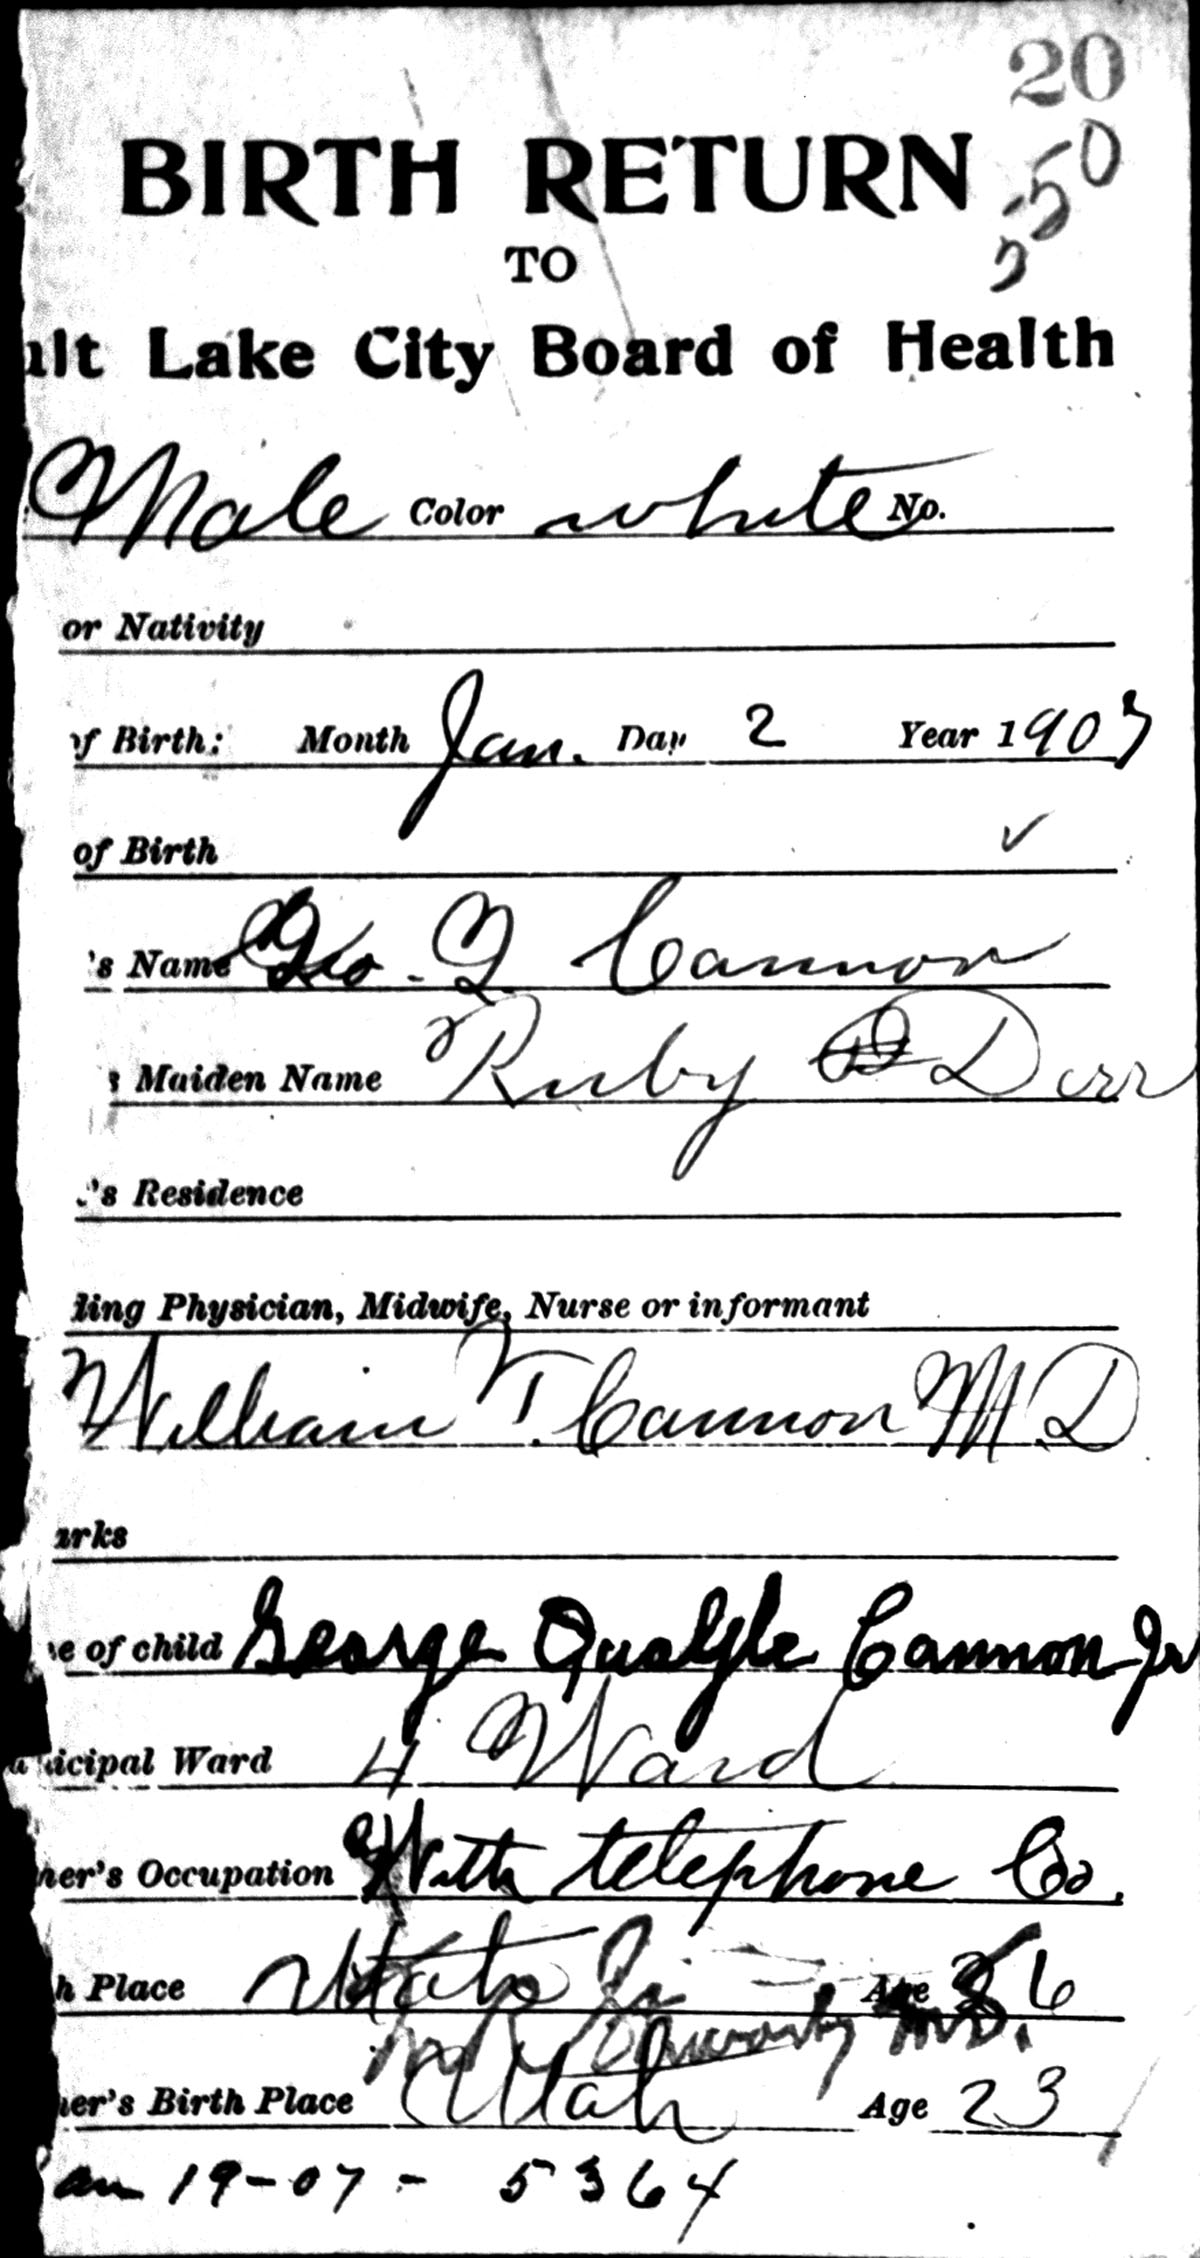 20
50
BIRTH RETURN
TO
alt Lake City Board of Health
Male Color white No.
or Nativity
of Birth: Month Jan. Day 2 Year 1907
of Birth ✓
's Name Geo. Q Cannon
s Maiden Name Ruby D Derr
's Residence
ding Physician, Midwife, Nurse or informant
William T. Cannon M.D
arks
e of child George Quayle Cannon Jr
nicipal Ward 4 Ward
her's Occupation With telephone Co.
h Place Utah Age 6
M.D.
her's Birth Place Utah Age 23
an 19-07- 5364